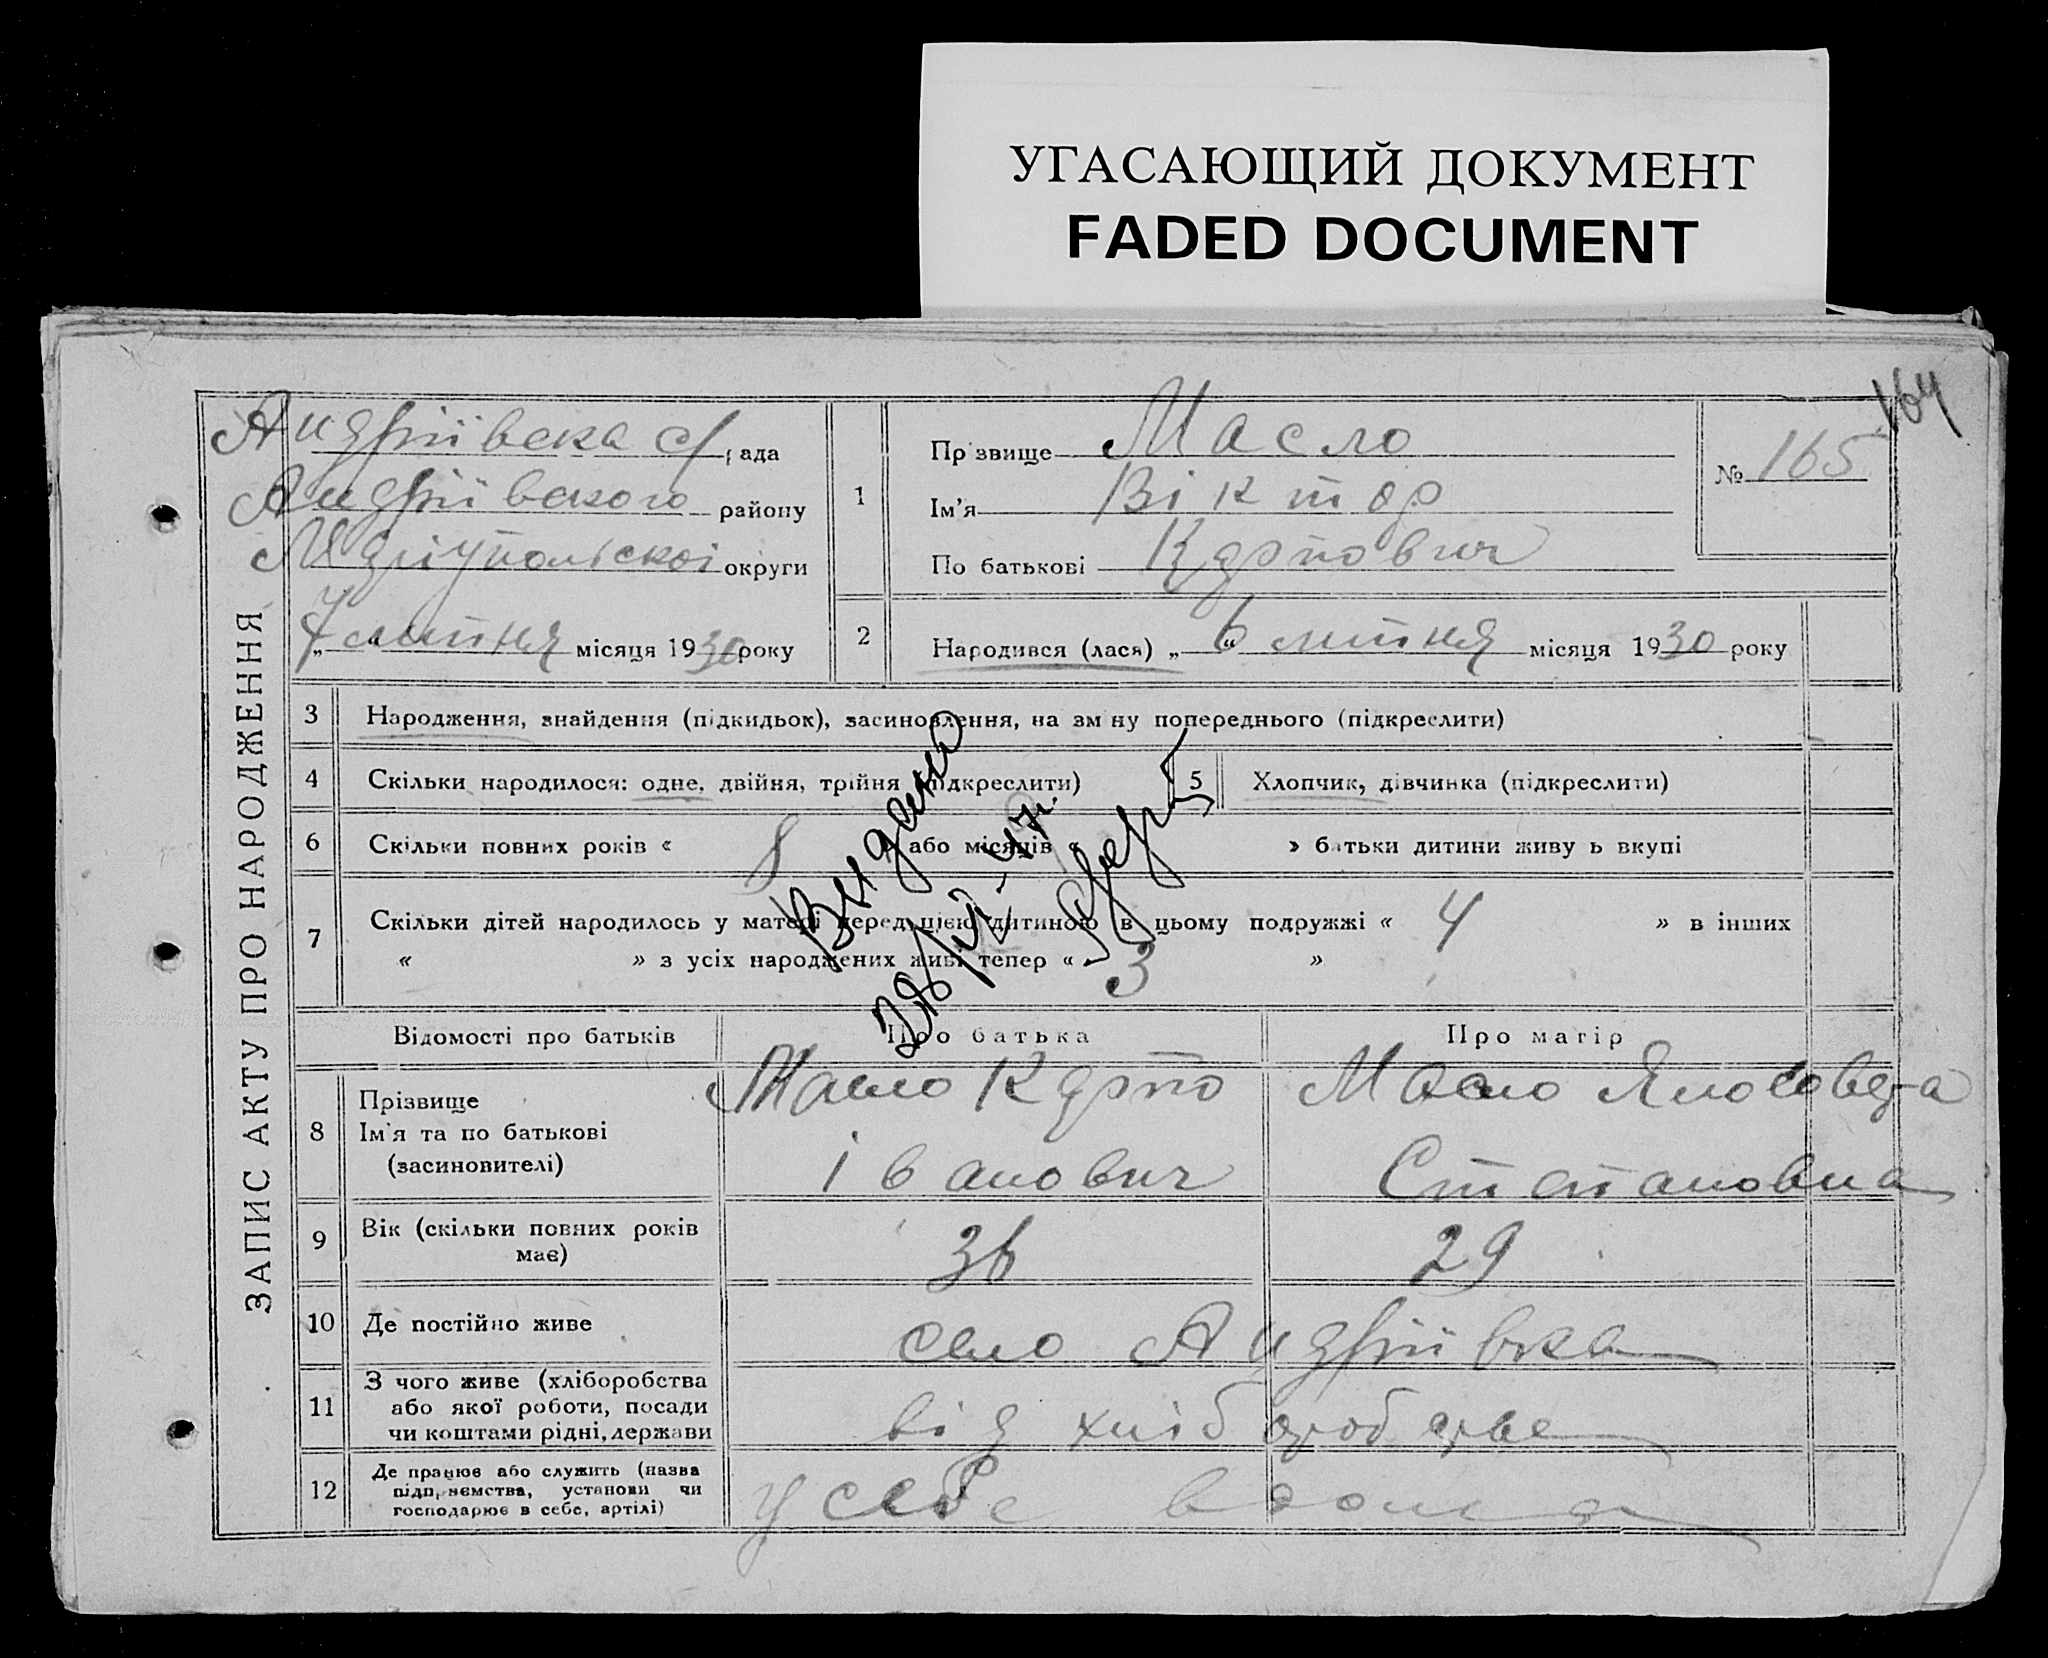 УГАСАЮЩИЙ ДОКУМЕНТ
FADED DOCUMENT
164
ЗАПИС АКТУ ПРО НАРОДЖЕННЯ
Андріївска с/рада
Андріївского району
Маріупольскої округи
„7“ липня місяця 1930 року
1
Прізвище Масло
Ім'я Віктор
По батькові Карпович
№ 165
2 Народився (лася) „6“ липня місяця 1930 року
3 Народження, знайдення (підкидьок), засиновлення, на зміну попереднього (підкреслити)
4 Скільки народилося: одне, двійня, трійня (підкреслити) 5 Хлопчик, дівчинка (підкреслити)
6 Скільки повних років « 8 » або місяців « » батьки дитини живуть вкупі
7 Скільки дітей народилось у матері перед цією дитиною в цьому подружжі « 4 » в інших
« » з усіх народжених живі тепер « 3 »
Видано
Відомості про батьків Про батька Про матір
8 Прізвище
Ім'я та по батькові
(засиновителі)
Масло Карпо
Іванович
Масло
Степановна
9 Вік (скільки повних років має) 36 29
10 Де постійно живе село Андріївка
11 З чого живе (хліборобства
або якої роботи, посади
чи коштами рідні, держави
від хліборобства
12 Де працює або служить (назва
підприємства, установи чи
господарює в себе, артілі)
у себе вдома